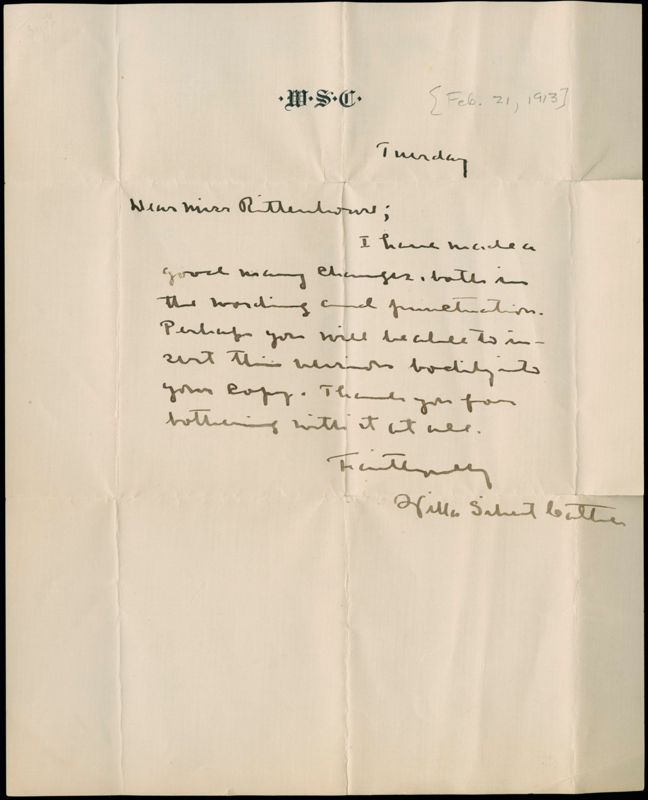 ·W·S·C·
{Feb. 21, 1913]
Tuesday
Dear Miss Rittenhouse;
I have made a
good many changes, both in
the wording and punctuation.
Perhaps you will be able to in-
sert this version bodily into
your copy. Thank you for
bothering with it at all.
Faithfully
Willa Sibert Cather